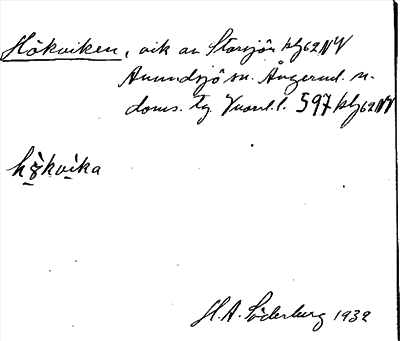 Hökviken, vik av Storsjön blg62NV
Anundsjö sn. Ångerml. n.
doms. tg. Vnorrl. l. 597 blg62NV
hö̀kvìka
H.A. Söderberg 1932